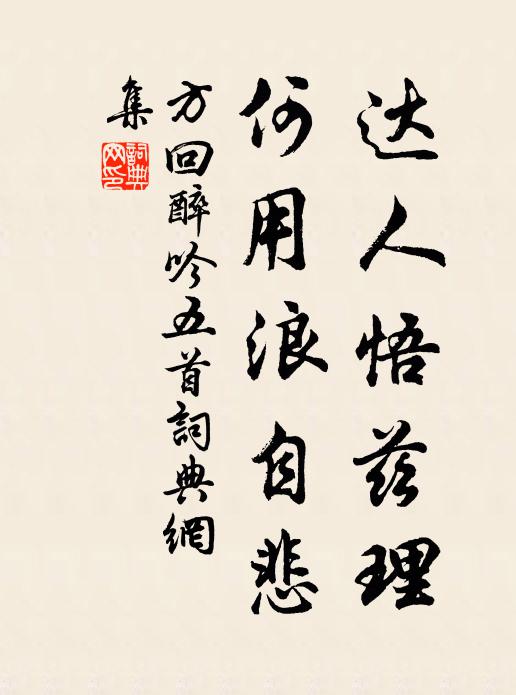 达人悟兹理
何用浪自悲
方回醉吟五首詞典網
集
詞典
网印